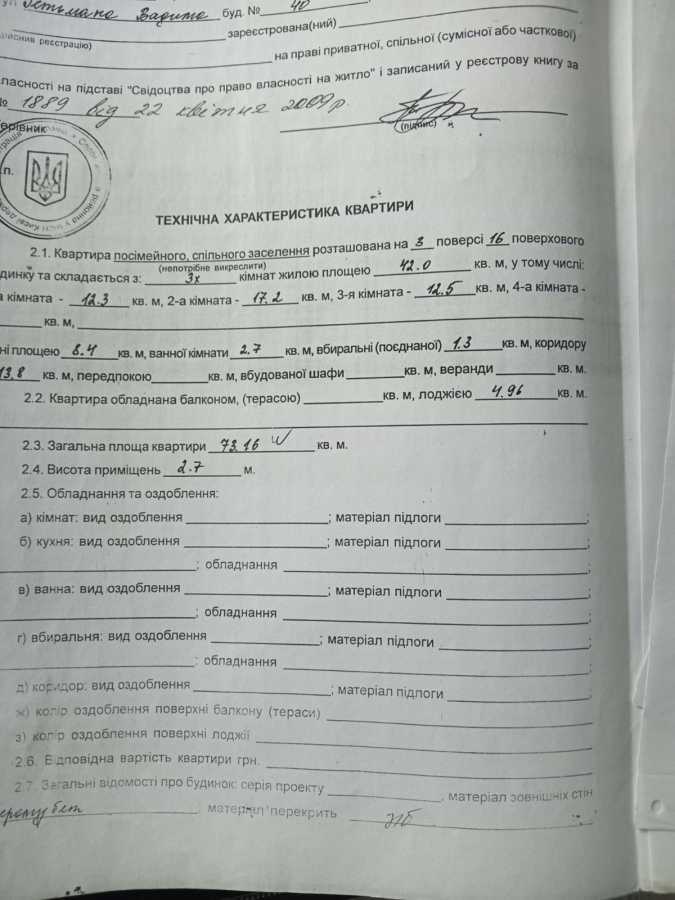 Гетьмана Вадима буд. № 40
зареєстрована(ний)
реєстрацію)
на праві приватної, спільної (сумісної або часткової)
власності на підставі "Свідоцтва про право власності на житло" і записаний у реєстрову книгу за
№ 1889 від 22 квітня 2009 р.
(підпис)
ерівник
.п.
ТЕХНІЧНА ХАРАКТЕРИСТИКА КВАРТИРИ
2.1. Квартира посімейного, спільного заселення розташована на 3 поверсі 16 поверхового
(непотрібне викреслити)
динку та складається з: 3х кімнат жилою площею 42.0 кв. м, у тому числі:
а кімната - 12.3 кв. м, 2-а кімната - 17.2 кв. м, 3-я кімната - 12.5 кв. м, 4-а кімната -
кв. м,
ні площею 8.4 кв. м, ванної кімнати 2.7 кв. м, вбиральні (поєднаної) 1.3 кв. м, коридору
13.8 кв. м, передпокою кв. м, вбудованої шафи кв. м, веранди кв. м.
2.2. Квартира обладнана балконом, (терасою) кв. м, лоджією 4.96 кв. м.
2.3. Загальна площа квартири 73.16 кв. м.
2.4. Висота приміщень 2.7 м.
2.5. Обладнання та оздоблення:
а) кімнат: вид оздоблення ; матеріал підлоги ;
б) кухня: вид оздоблення ; матеріал підлоги ;
; обладнання ;
в) ванна: вид оздоблення ; матеріал підлоги ;
; обладнання ;
г) вбиральня: вид оздоблення ; матеріал підлоги ;
; обладнання ;
д) коридор: вид оздоблення ; матеріал підлоги ;
ж) колір оздоблення поверхні балкону (тераси)
з) колір оздоблення поверхні лоджії
2.6. Відповідна вартість квартири грн.
2.7. Загальні відомості про будинок: серія проекту , матеріал зовнішніх стін
матеріал перекрить з/б